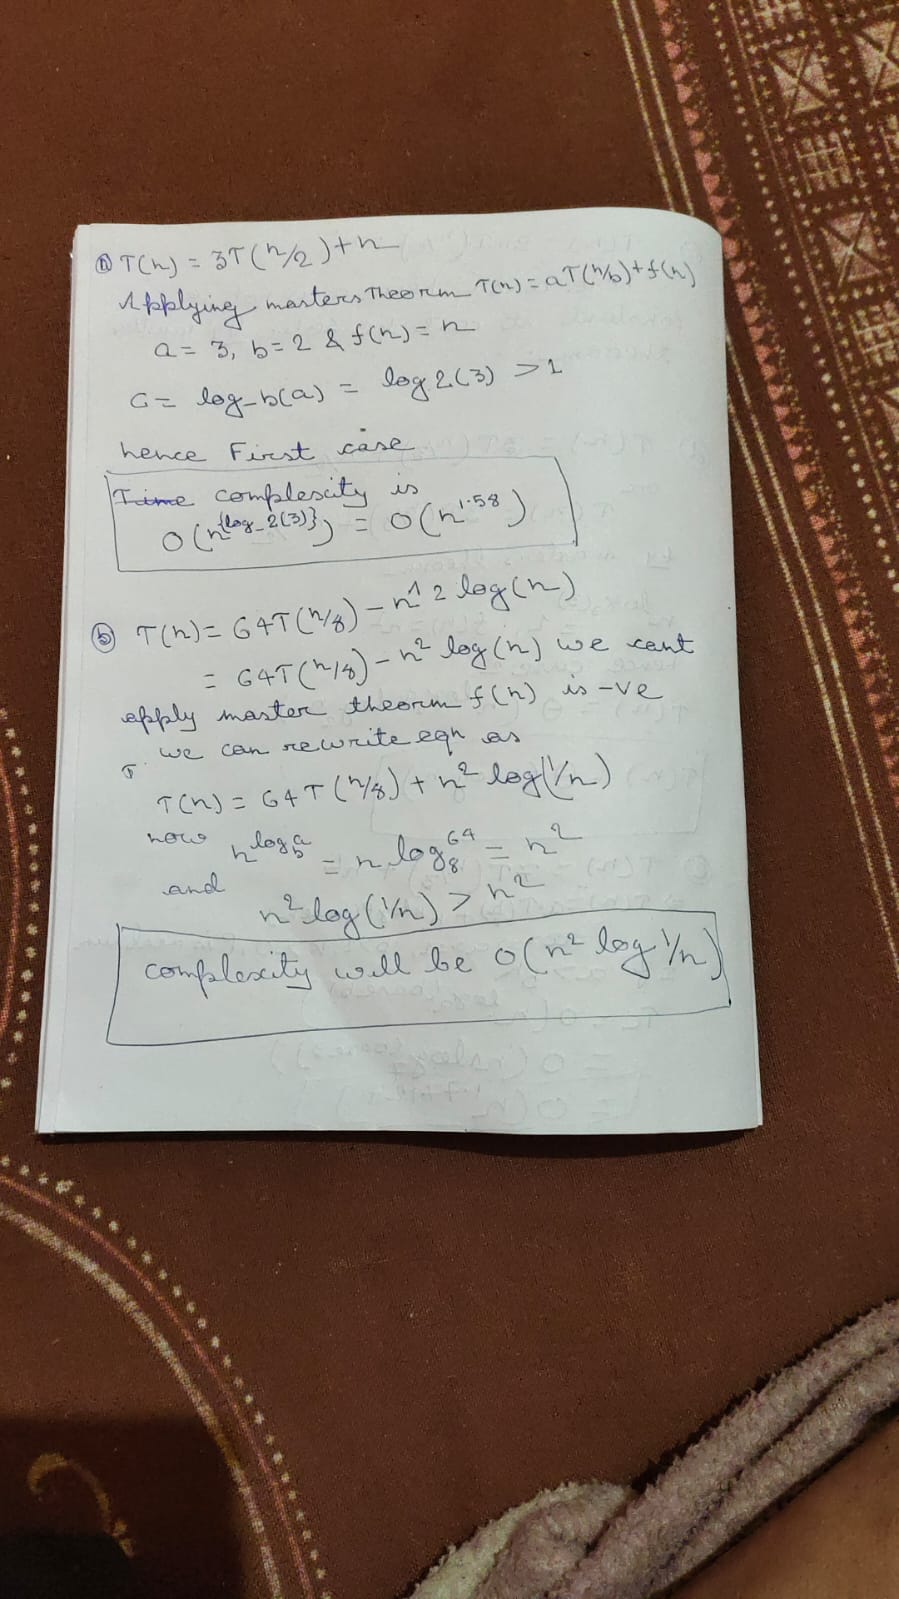 ⓐ T(n) = 3T(n/2)+n
Applying masters Theorm T(n) = aT(n/b)+f(n)
a = 3, b = 2 & f(n) = n
C = log_b(a) = log 2(3) > 1
hence First case
Time complexity is
O(n^{log_2(3)}) = O(n^1.58)
ⓑ T(n) = 64T(n/8) - n^2 log(n)
= 64T(n/8) - n² log(n) we cant
apply master theorm f(n) is -ve
we can rewrite eqn as
T(n) = 64T(n/8) + n² log(1/n)
now n^log_b^a = n log_8^64 = n²
and
n² log(1/n) > n²
complexity will be O(n² log 1/n)